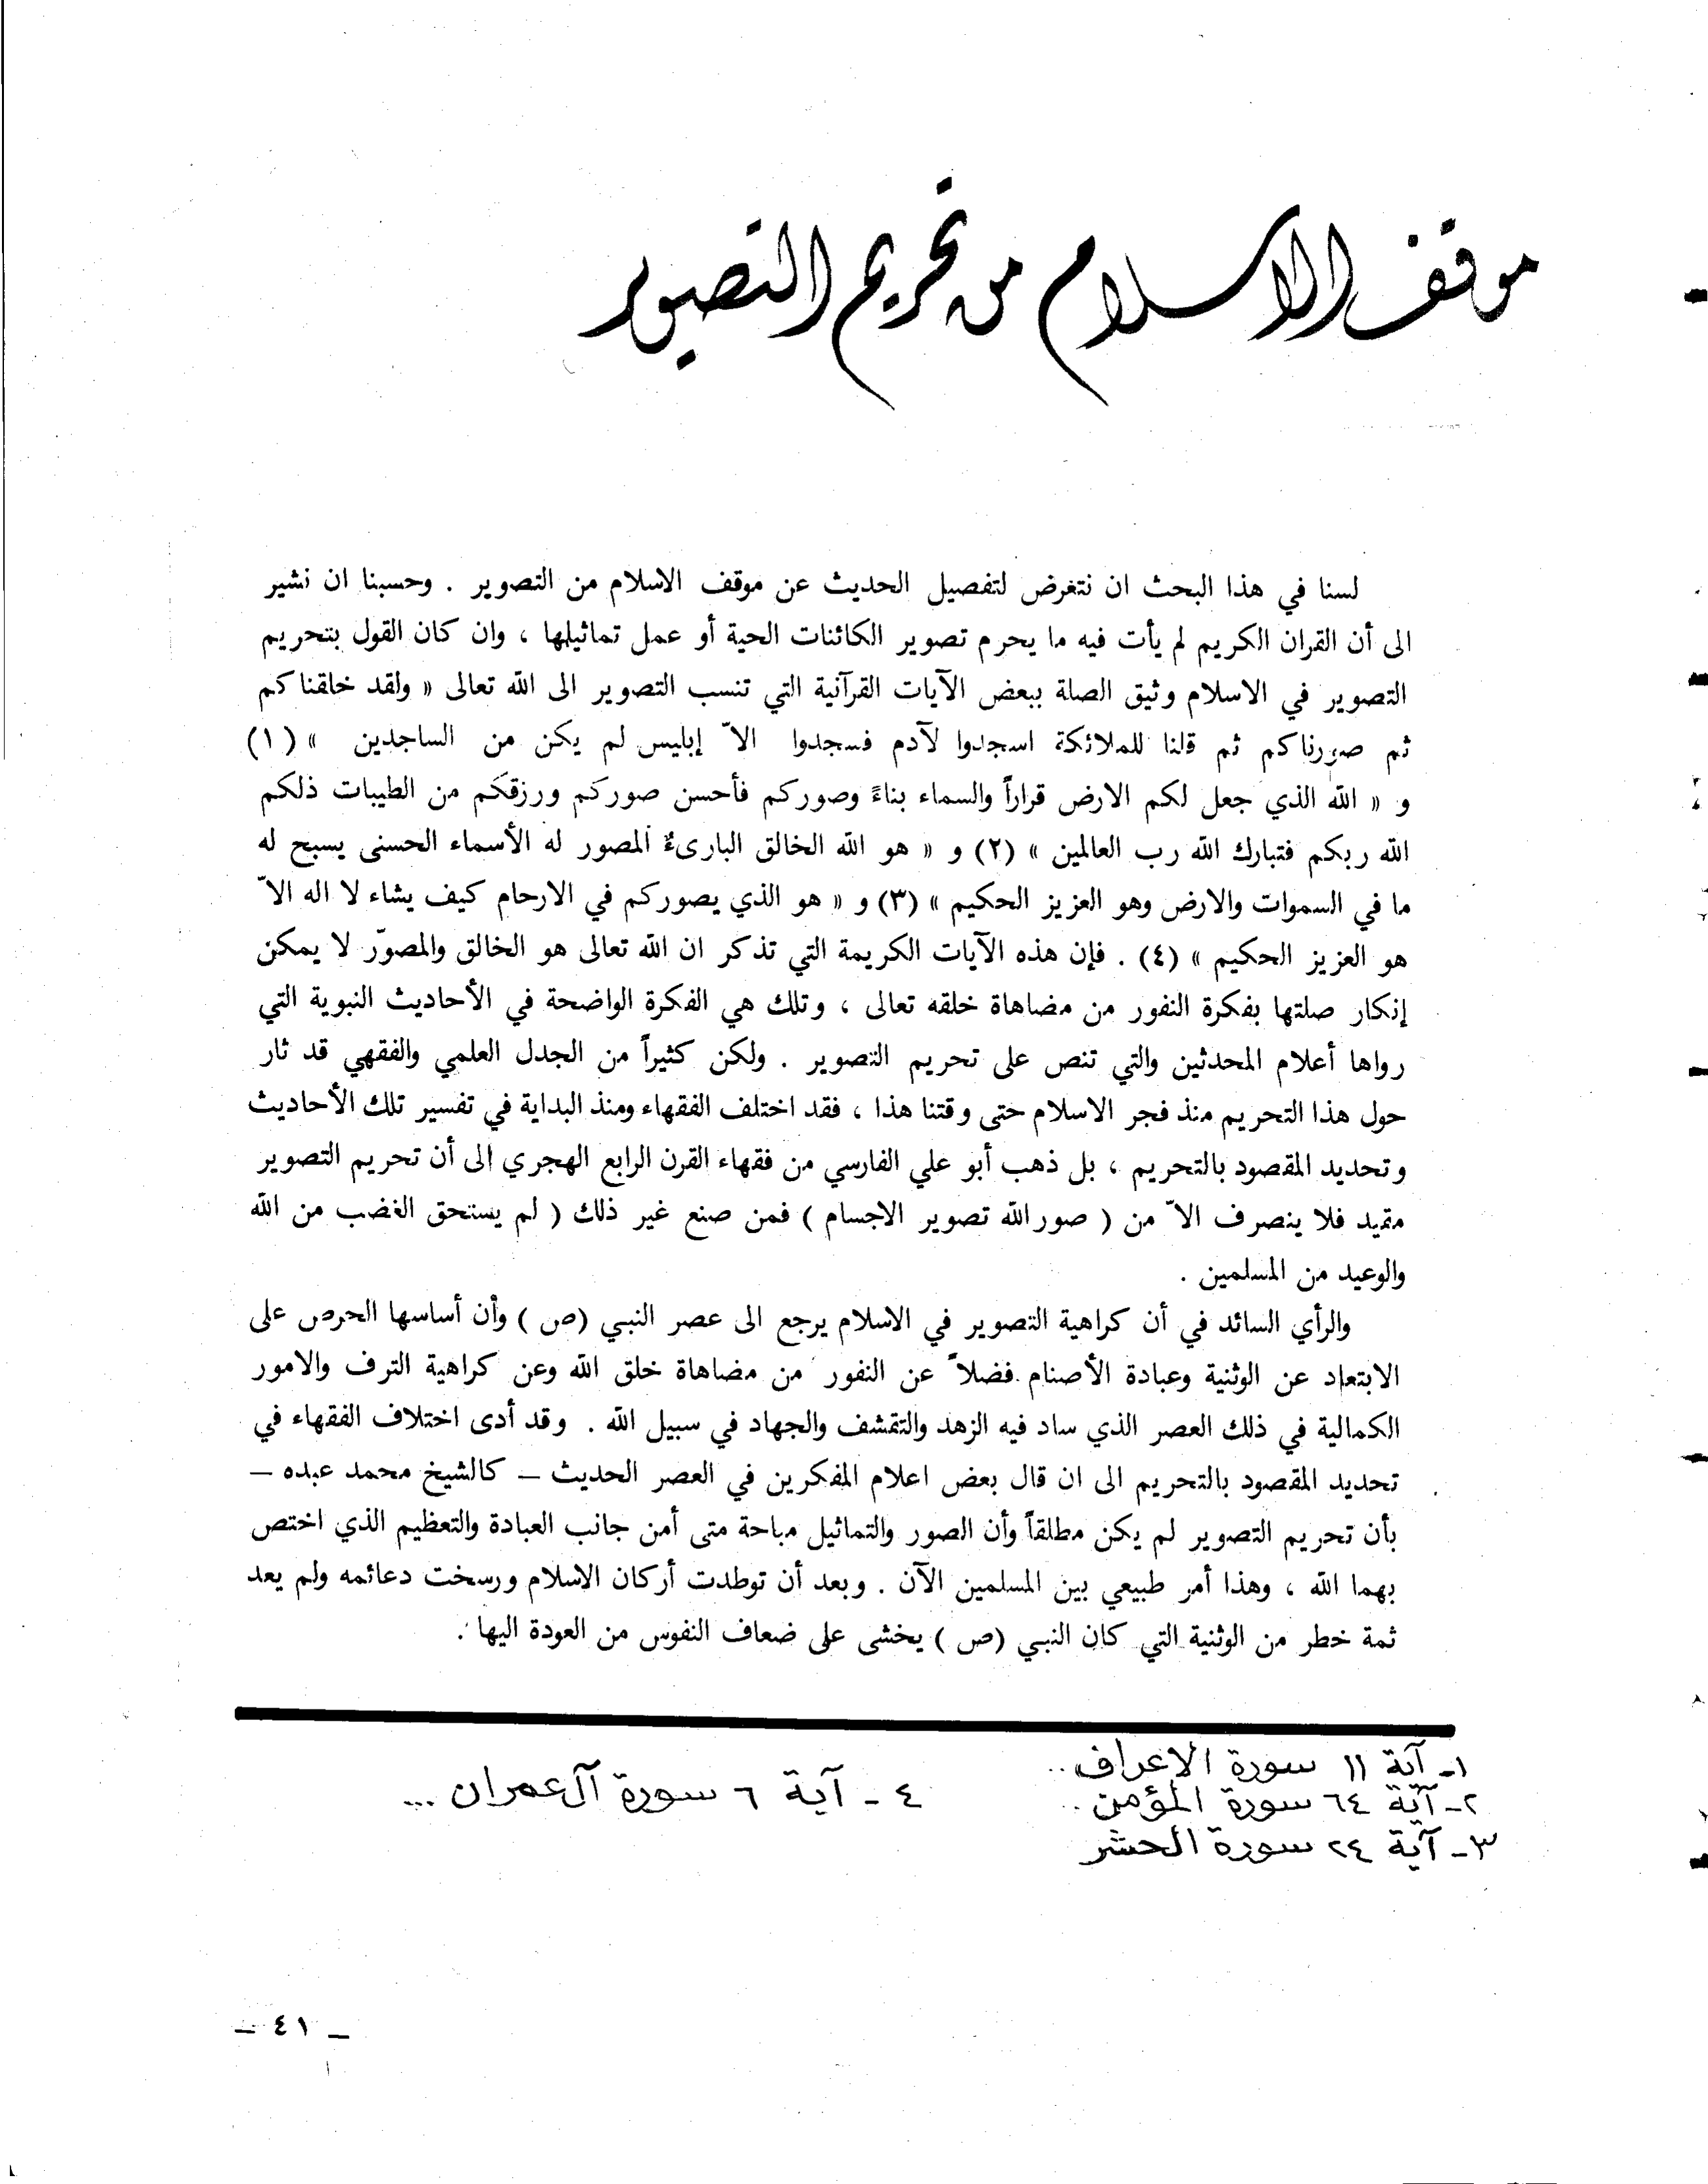 موقف الاسلام من تحريم التصوير
لسنا في هذا البحث ان نتعرض لتفصيل الحديث عن موقف الاسلام من التصوير . وحسبنا ان نشير
الى أن القران الكريم لم يأت فيه ما يحرم تصوير الكائنات الحية أو عمل تماثيلها ، وان كان القول بتحريم
التصوير في الاسلام وثيق الصلة ببعض الآيات القرآنية التي تنسب التصوير الى الله تعالى « ولقد خلقناكم
ثم صورناكم ثم قلنا للملائكة اسجدوا لآدم فسجدوا الاّ إبليس لم يكن من الساجدين » (١)
و « الله الذي جعل لكم الارض قراراً والسماء بناءً وصوركم فأحسن صوركم ورزقكم من الطيبات ذلكم
الله ربكم فتبارك الله رب العالمين » (٢) و « هو الله الخالق البارىءُ المصور له الأسماء الحسنى يسبح له
ما في السموات والارض وهو العزيز الحكيم » (٣) و « هو الذي يصوركم في الارحام كيف يشاء لا اله الاّ
هو العزيز الحكيم » (٤) . فإن هذه الآيات الكريمة التي تذكر ان الله تعالى هو الخالق والمصوّر لا يمكن
إنكار صلتها بفكرة النفور من مضاهاة خلقه تعالى ، وتلك هي الفكرة الواضحة في الأحاديث النبوية التي
رواها أعلام المحدثين والتي تنص على تحريم التصوير . ولكن كثيراً من الجدل العلمي والفقهي قد ثار
حول هذا التحريم منذ فجر الاسلام حتى وقتنا هذا ، فقد اختلف الفقهاء ومنذ البداية في تفسير تلك الأحاديث
وتحديد المقصود بالتحريم ، بل ذهب أبو علي الفارسي من فقهاء القرن الرابع الهجري إلى أن تحريم التصوير
مقيد فلا ينصرف الاّ من ( صور الله تصوير الاجسام ) فمن صنع غير ذلك ( لم يستحق الغضب من الله
والوعيد من المسلمين .
والرأي السائد في أن كراهية التصوير في الاسلام يرجع الى عصر النبي (ص ) وأن أساسها الحرص على
الابتعاد عن الوثنية وعبادة الأصنام فضلاً عن النفور من مضاهاة خلق الله وعن كراهية الترف والامور
الكمالية في ذلك العصر الذي ساد فيه الزهد والتقشف والجهاد في سبيل الله . وقد أدى اختلاف الفقهاء في
تحديد المقصود بالتحريم الى ان قال بعض اعلام المفكرين في العصر الحديث – كالشيخ محمد عبده –
بأن تحريم التصوير لم يكن مطلقاً وأن الصور والتماثيل مباحة متى أمن جانب العبادة والتعظيم الذي اختص
بهما الله ، وهذا أمر طبيعي بين المسلمين الآن . وبعد أن توطدت أركان الاسلام ورسخت دعائمه ولم يعد
ثمة خطر من الوثنية التي كان النبي (ص ) يخشى على ضعاف النفوس من العودة اليها .
١- آية ١١ سورة الاعراف ..
٢- آية ٦٤ سورة المؤمن ..
٣- آية ٢٤ سورة الحشر
٤ - آية ٦ سورة آل عمران ...
– ٤١ –